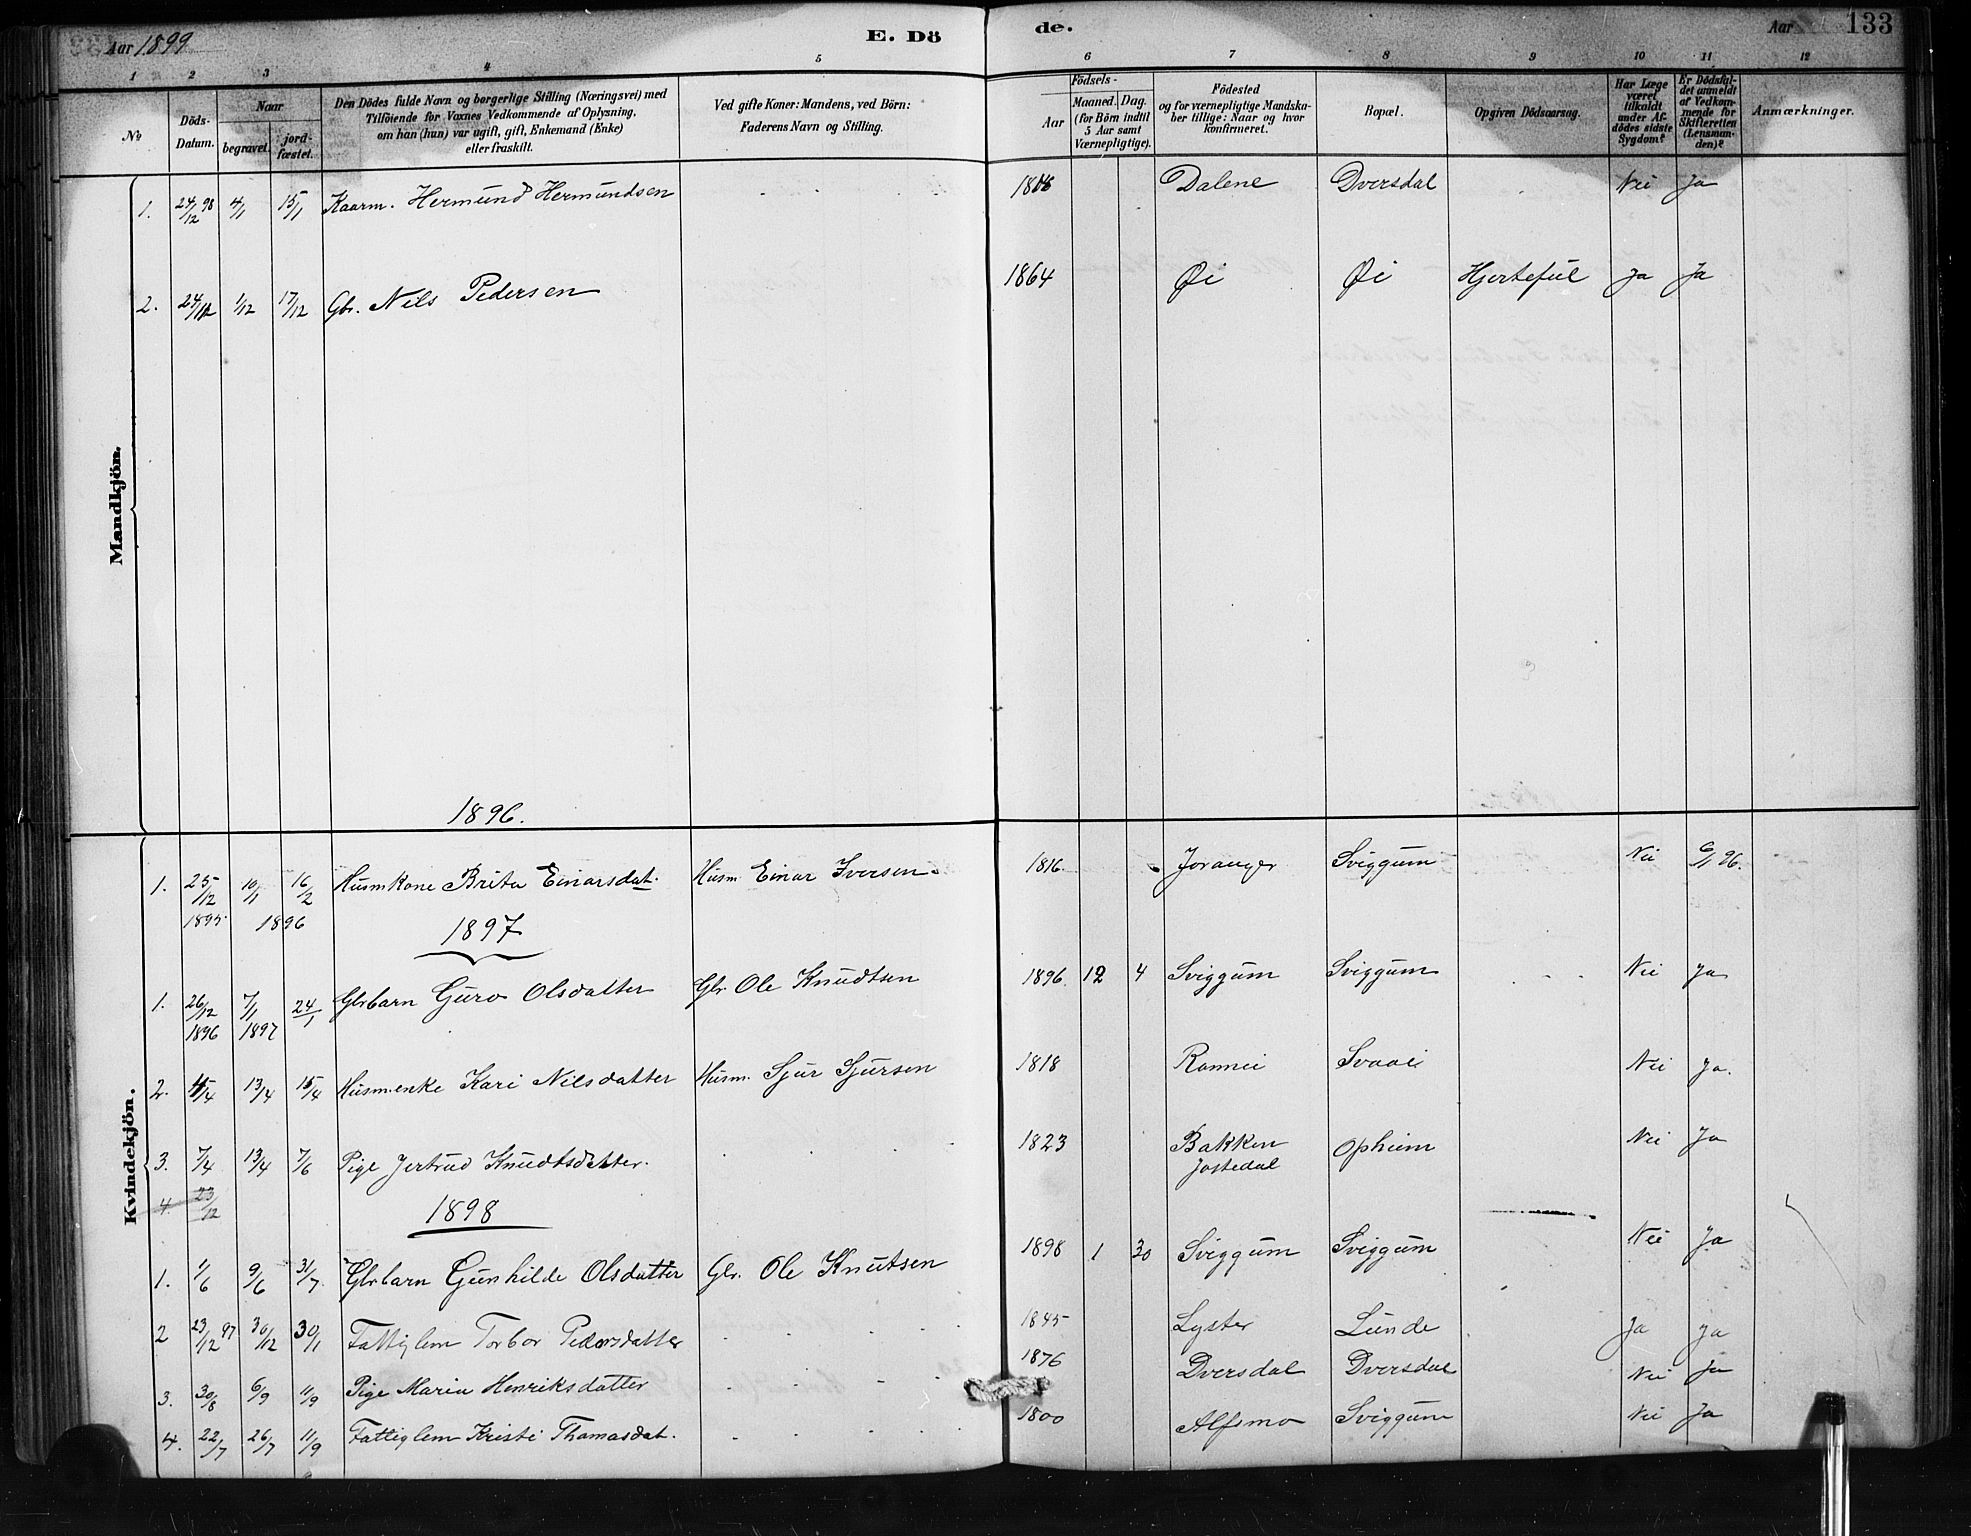 Aar 1899 E. Dö de. Aar 133
1 2 3 4 5 6 7 8 9 10 11 12
No Döds-Datum. Naar begravet. jord-fæstet. Den Dödes fulde Navn og borgerlige Stilling (Næringsvei) med Tilföiende for Voxnes Vedkommende af Oplysning, om han (hun) var ugift, gift, Enkemand (Enke) eller fraskilt. Ved gifte Koner: Mandens, ved Börn: Faderens Navn og Stilling. Födsels- Aar Maaned. Dag. (for Börn indtil 5 Aar samt Værnepligtige). Födested og for værnepligtige Mandskaber tillige: Naar og hvor konfirmeret. Bopæl. Opgiven Dödsaarsag. Har Læge været tilkaldt under Afdödes sidste Sygdom? Er Dödsfaldet anmeldt af Vedkommende for Skifteretten (Lensmanden)? Anmærkninger.
Mandkjön.
1. 24/12 98 4/1 15/1 Kaarm. Hermund Hermundsen Dalene Dversdal Nei Ja
2. 1/12 17/12 Gbr. Nils Pedersen 1864 Øi Øi Hjertefeil Ja Ja
1896.
Kvindekjön.
1. 25/12 10/1 16/2 Husmkone Brita Einarsdat. Husm. Einar Iversen 1816. Joranger Sviggum Nei 6/1 96.
1895 1896
1897
1. 26/12 7/1 24/1 Gbrbarn Guro Olsdatter Gbr. Ole Knudtsen 1896. 12 4 Sviggum Sviggum Nei Ja
1896 1897
2. 13/4 15/4 Husmenke Kari Nilsdatter Husm. Sjur Sjursen 1818 Ronnei Svaai Nei Ja.
3. 7/4 13/4 7/6 Pige Jertrud Knudtsdatter. 1823 Bakken Jostedal Opheim Nei Ja
4. 23/12
1898
1. 1/6 9/6 31/7 Gbrbarn Gunhilde Olsdatter Gbr. Ole Knutsen 1898 1 30 Sviggum Sviggum Nei Ja
2 23/12 97 30/12 30/1 Fattiglem Torbor Pedersdatter 1845 Lyster Lunde Ja Ja
3. 30/8 6/9 11/9 Pige Maria Henriksdatter 1876 Dversdal Dversdal Nei Ja
4. 22/7 26/7 11/9 Fattiglem Kristi Thomasdat. 1800 Alsmo Sviggum Nei Ja